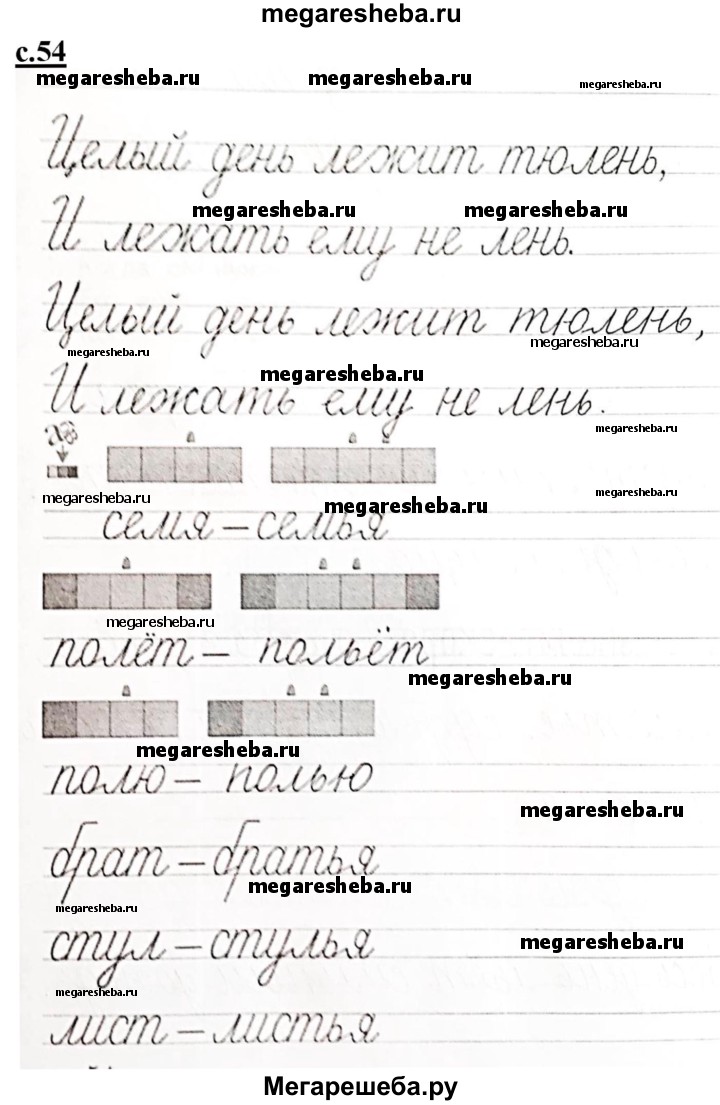 megaresheba.ru
с.54
megaresheba.ru megaresheba.ru megaresheba.ru
Целый день лежит тюлень,
megaresheba.ru megaresheba.ru
И лежать ему не лень.
Целый день лежит тюлень,
megaresheba.ru megaresheba.ru
megaresheba.ru
И лежать ему не лень.
megaresheba.ru
megaresheba.ru megaresheba.ru megaresheba.ru
семя – семья
megaresheba.ru
полёт – польёт
megaresheba.ru
megaresheba.ru
полю – полью
megaresheba.ru
брат – братья
megaresheba.ru megaresheba.ru
стул – стулья
megaresheba.ru
megaresheba.ru
лист – листья
Мегарешеба.ру